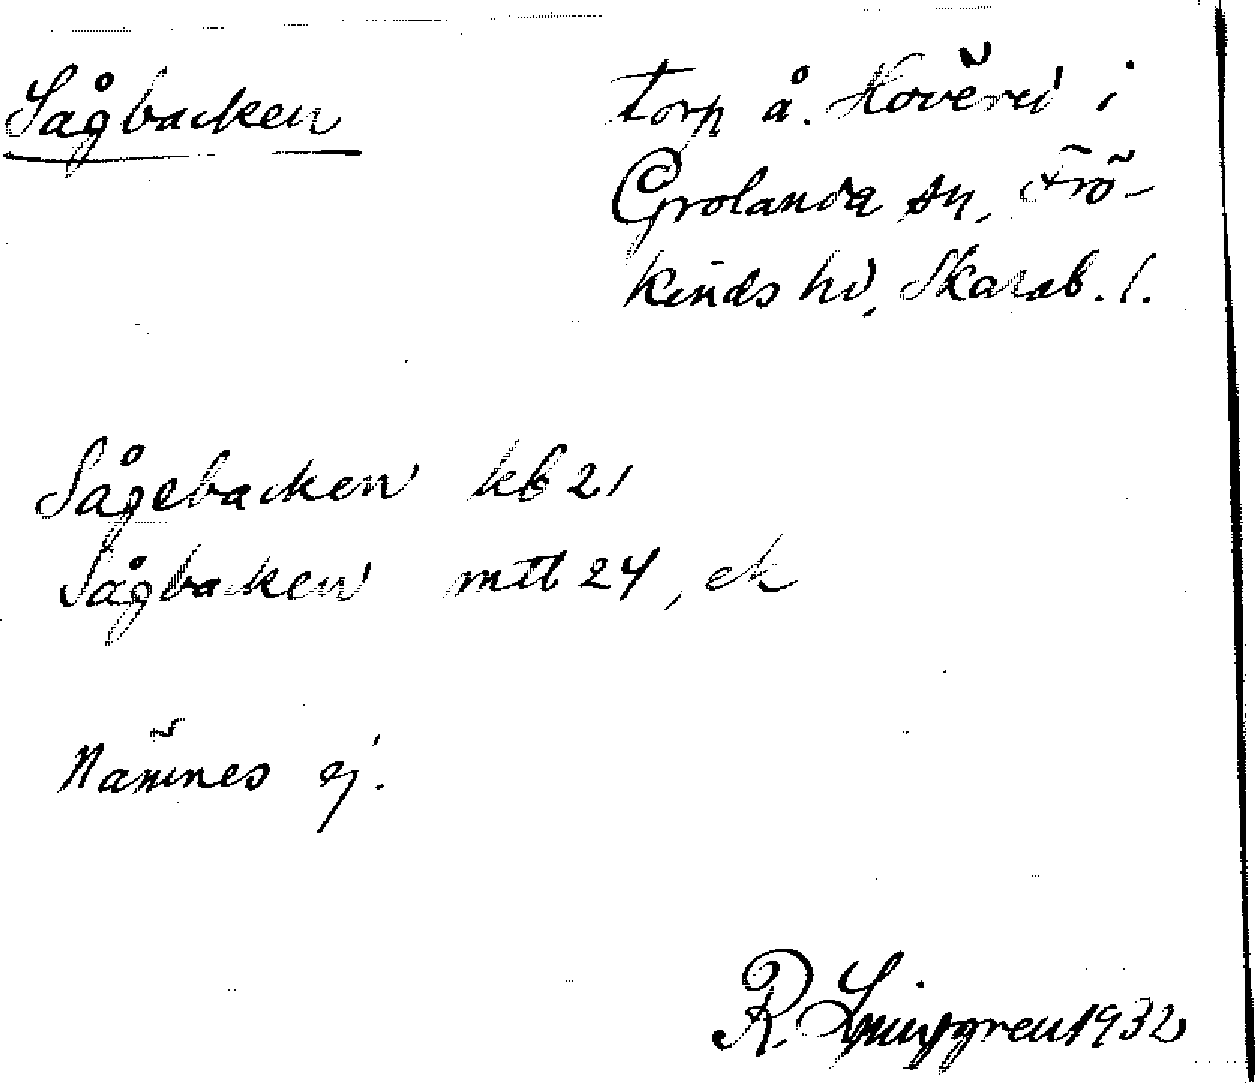 Sågbacken
torp å. Hovéru i
Grolanda sn, Frö-
kinds hd, Skarab. l.
Sågebacken kb 21
Sågbacken mtl 24, ek
Nämnes ej.
R. Ljunggren 1932